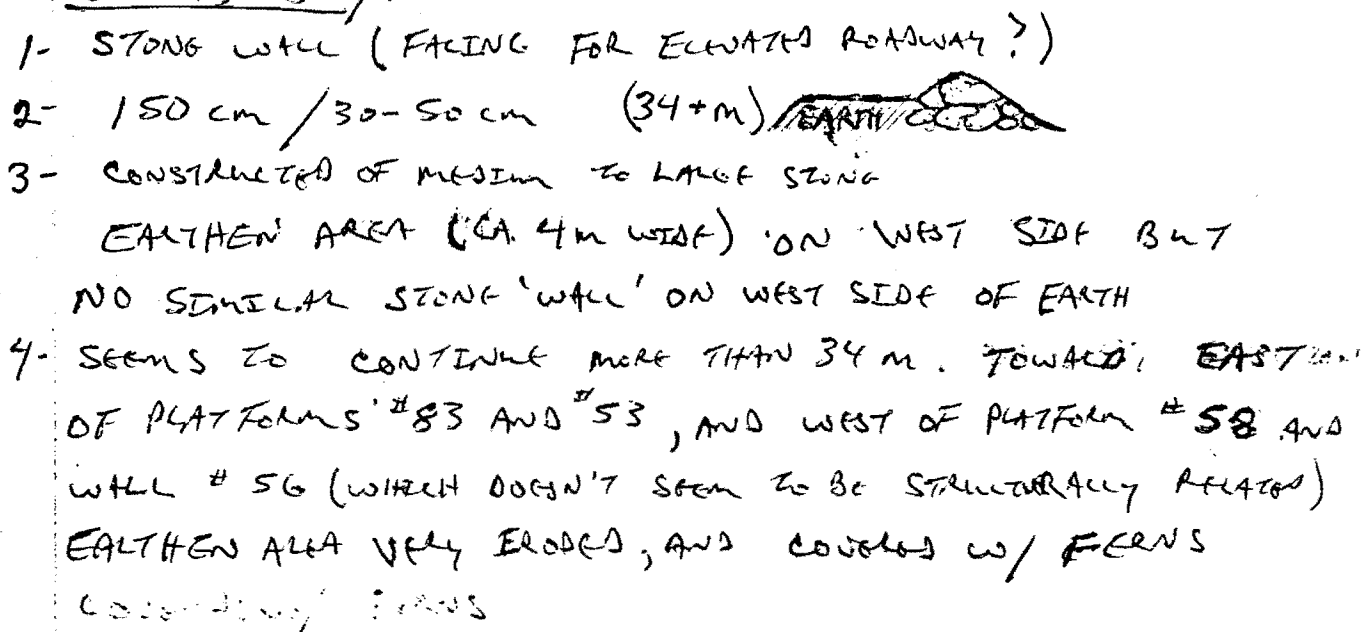 1- STONE WALL (FACING FOR ELEVATED ROADWAY?)
2- 150 cm / 30-50 cm (34+m) EARTH
3- CONSTRUCTED OF MEDIUM TO LARGE STONE
EARTHEN AREA (CA. 4m WIDE) ON WEST SIDE BUT
NO SIMILAR STONE 'WALL' ON WEST SIDE OF EARTH
4- SEEMS TO CONTINUE MORE THAN 34 m. TOWARD EAST
OF PLATFORMS #83 AND #53, AND WEST OF PLATFORM #58 AND
WALL #56 (WHICH DOESN'T SEEM TO BE STRUCTURALLY RELATED)
EARTHEN AREA VERY ERODED, AND COVERED W/ FERNS
FERNS